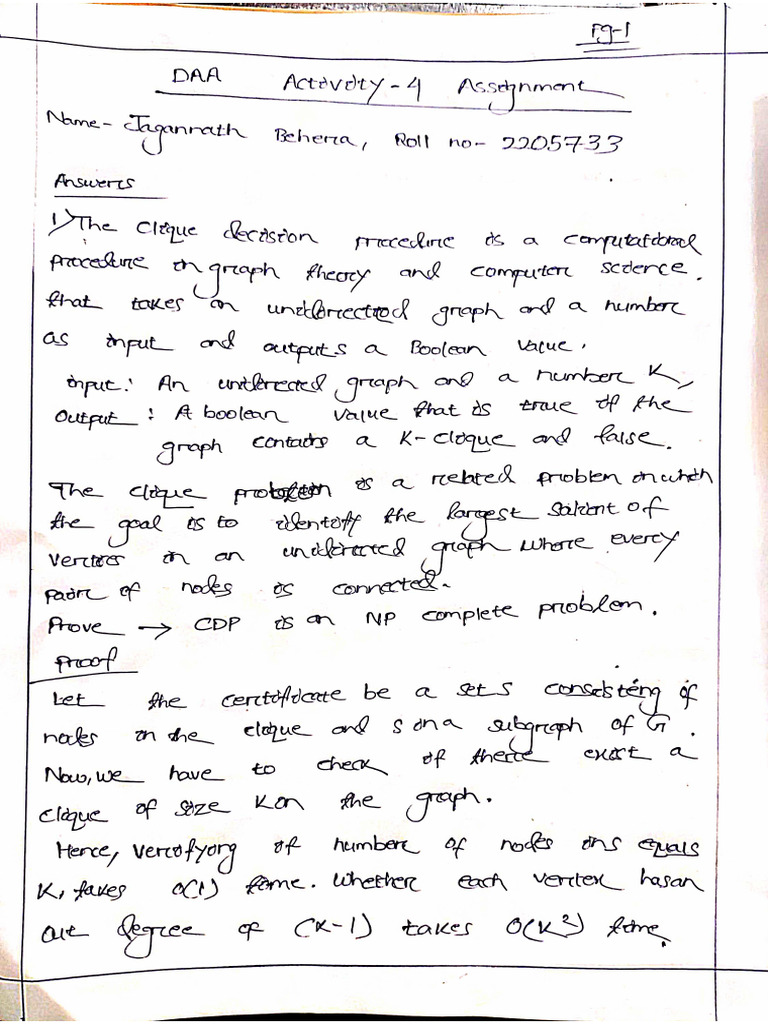 Pg-1
DAA Activity-4 Assignment
Name- Jagannath Behera, Roll no- 2205733
Answers
1) The Clique decision procedure is a computational
procedure in graph theory and computer science.
that takes an undirected graph and a number
as input and outputs a Boolean value.
input: An undirected graph and a number K,
Output: A boolean value that is true if the
graph contains a K-clique and false.
The clique problem is a related problem in which
the goal is to identify the largest subset of
vertices in an undirected graph where every
pair of nodes is connected.
Prove → CDP is an NP complete problem.
Proof
Let the certificate be a set S consisting of
nodes in the clique and S is a subgraph of G.
Now, we have to check if there exist a
clique of size K in the graph.
Hence, verifying if number of nodes in S equals
K, takes O(1) time. Whether each vertex has an
out degree of (K-1) takes O(K²) time.